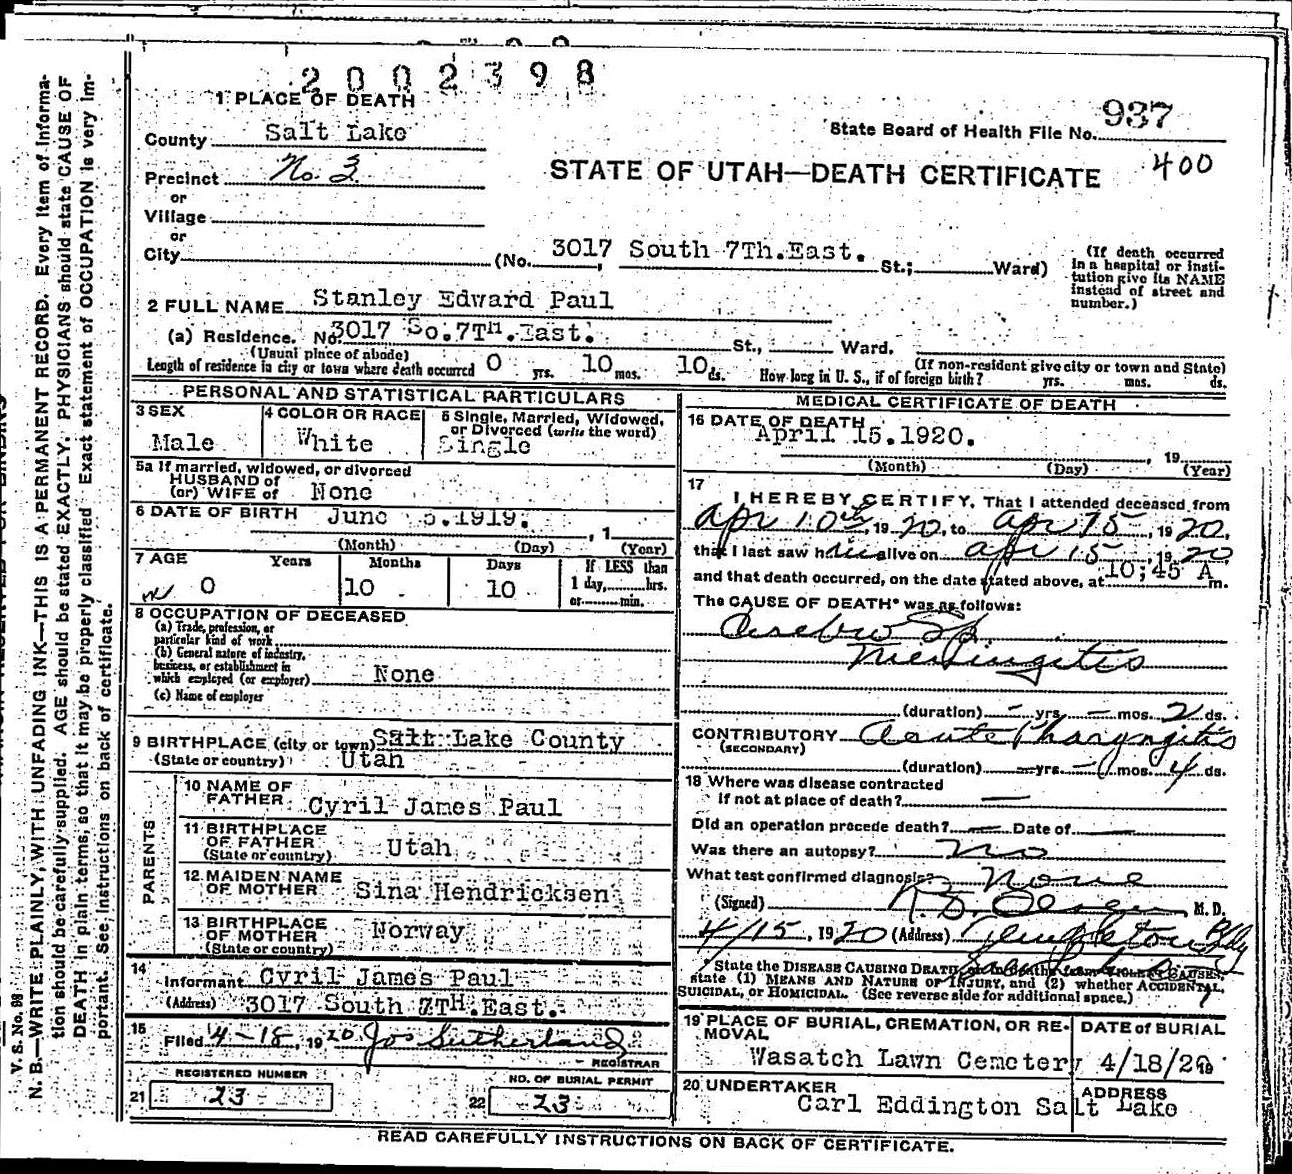 2002398
1 PLACE OF DEATH
County Salt Lake
State Board of Health File No. 937
Precinct No. 3
STATE OF UTAH—DEATH CERTIFICATE 400
or
Village
or
City (No. 3017 South 7Th. East. St.; Ward)
(If death occurred in a hospital or institution give its NAME instead of street and number.)
2 FULL NAME Stanley Edward Paul
(a) Residence. No. 3017 So. 7TH. East. St., Ward.
(Usual place of abode) (If non-resident give city or town and State)
Length of residence in city or town where death occurred 0 yrs. 10 mos. 10 ds. How long in U. S., if of foreign birth? yrs. mos. ds.
PERSONAL AND STATISTICAL PARTICULARS
3 SEX
Male
4 COLOR OR RACE
White
5 Single, Married, Widowed, or Divorced (write the word)
Single
5a If married, widowed, or divorced
HUSBAND of
(or) WIFE of None
6 DATE OF BIRTH June 5.1919. , 1
(Month) (Day) (Year)
7 AGE Years Months Days If LESS than
0 10 10 1 day, hrs.
or min.
8 OCCUPATION OF DECEASED
(a) Trade, profession, or
particular kind of work
(b) General nature of industry,
business, or establishment in
which employed (or employer) None
(c) Name of employer
9 BIRTHPLACE (city or town) Salt Lake County
(State or country) Utah
PARENTS
10 NAME OF
FATHER Cyril James Paul
11 BIRTHPLACE
OF FATHER Utah
(State or country)
12 MAIDEN NAME
OF MOTHER Sina Hendricksen
13 BIRTHPLACE
OF MOTHER Norway
(State or country)
14
Informant Cyril James Paul
(Address) 3017 South 7TH. East.
15
Filed 4-18, 1920 Jos Sutherland
REGISTRAR
REGISTERED NUMBER
21 23
NO. OF BURIAL PERMIT
22 23
MEDICAL CERTIFICATE OF DEATH
16 DATE OF DEATH
April 15.1920. , 19
(Month) (Day) (Year)
17
I HEREBY CERTIFY, That I attended deceased from
Apr 10th, 1920, to Apr 15, 1920,
that I last saw him alive on Apr 15 1920
and that death occurred, on the date stated above, at 10;45 A m.
The CAUSE OF DEATH* was as follows:
Cerebro Sp.
Meningitis
(duration) - yrs. - mos. 2 ds.
CONTRIBUTORY Acute Pharyngitis
(SECONDARY)
(duration) - yrs. - mos. 4 ds.
18 Where was disease contracted
If not at place of death? —
Did an operation precede death? — Date of —
Was there an autopsy? No
What test confirmed diagnosis? None
(Signed) M. D.
4/15, 1920 (Address) Templeton Bldg
State the DISEASE CAUSING DEATH, or in deaths from VIOLENT CAUSES,
state (1) MEANS AND NATURE OF INJURY, and (2) whether ACCIDENTAL,
SUICIDAL, or HOMICIDAL. (See reverse side for additional space.)
19 PLACE OF BURIAL, CREMATION, OR REMOVAL
Wasatch Lawn Cemetery
DATE of BURIAL
4/18/20
20 UNDERTAKER
Carl Eddington Salt Lake
ADDRESS
READ CAREFULLY INSTRUCTIONS ON BACK OF CERTIFICATE.
V. S. No. 98
N. B.—WRITE PLAINLY, WITH UNFADING INK—THIS IS A PERMANENT RECORD. Every item of informa-
tion should be carefully supplied. AGE should be stated EXACTLY. PHYSICIANS should state CAUSE OF
DEATH in plain terms, so that it may be properly classified. Exact statement of OCCUPATION is very im-
portant. See instructions on back of certificate.